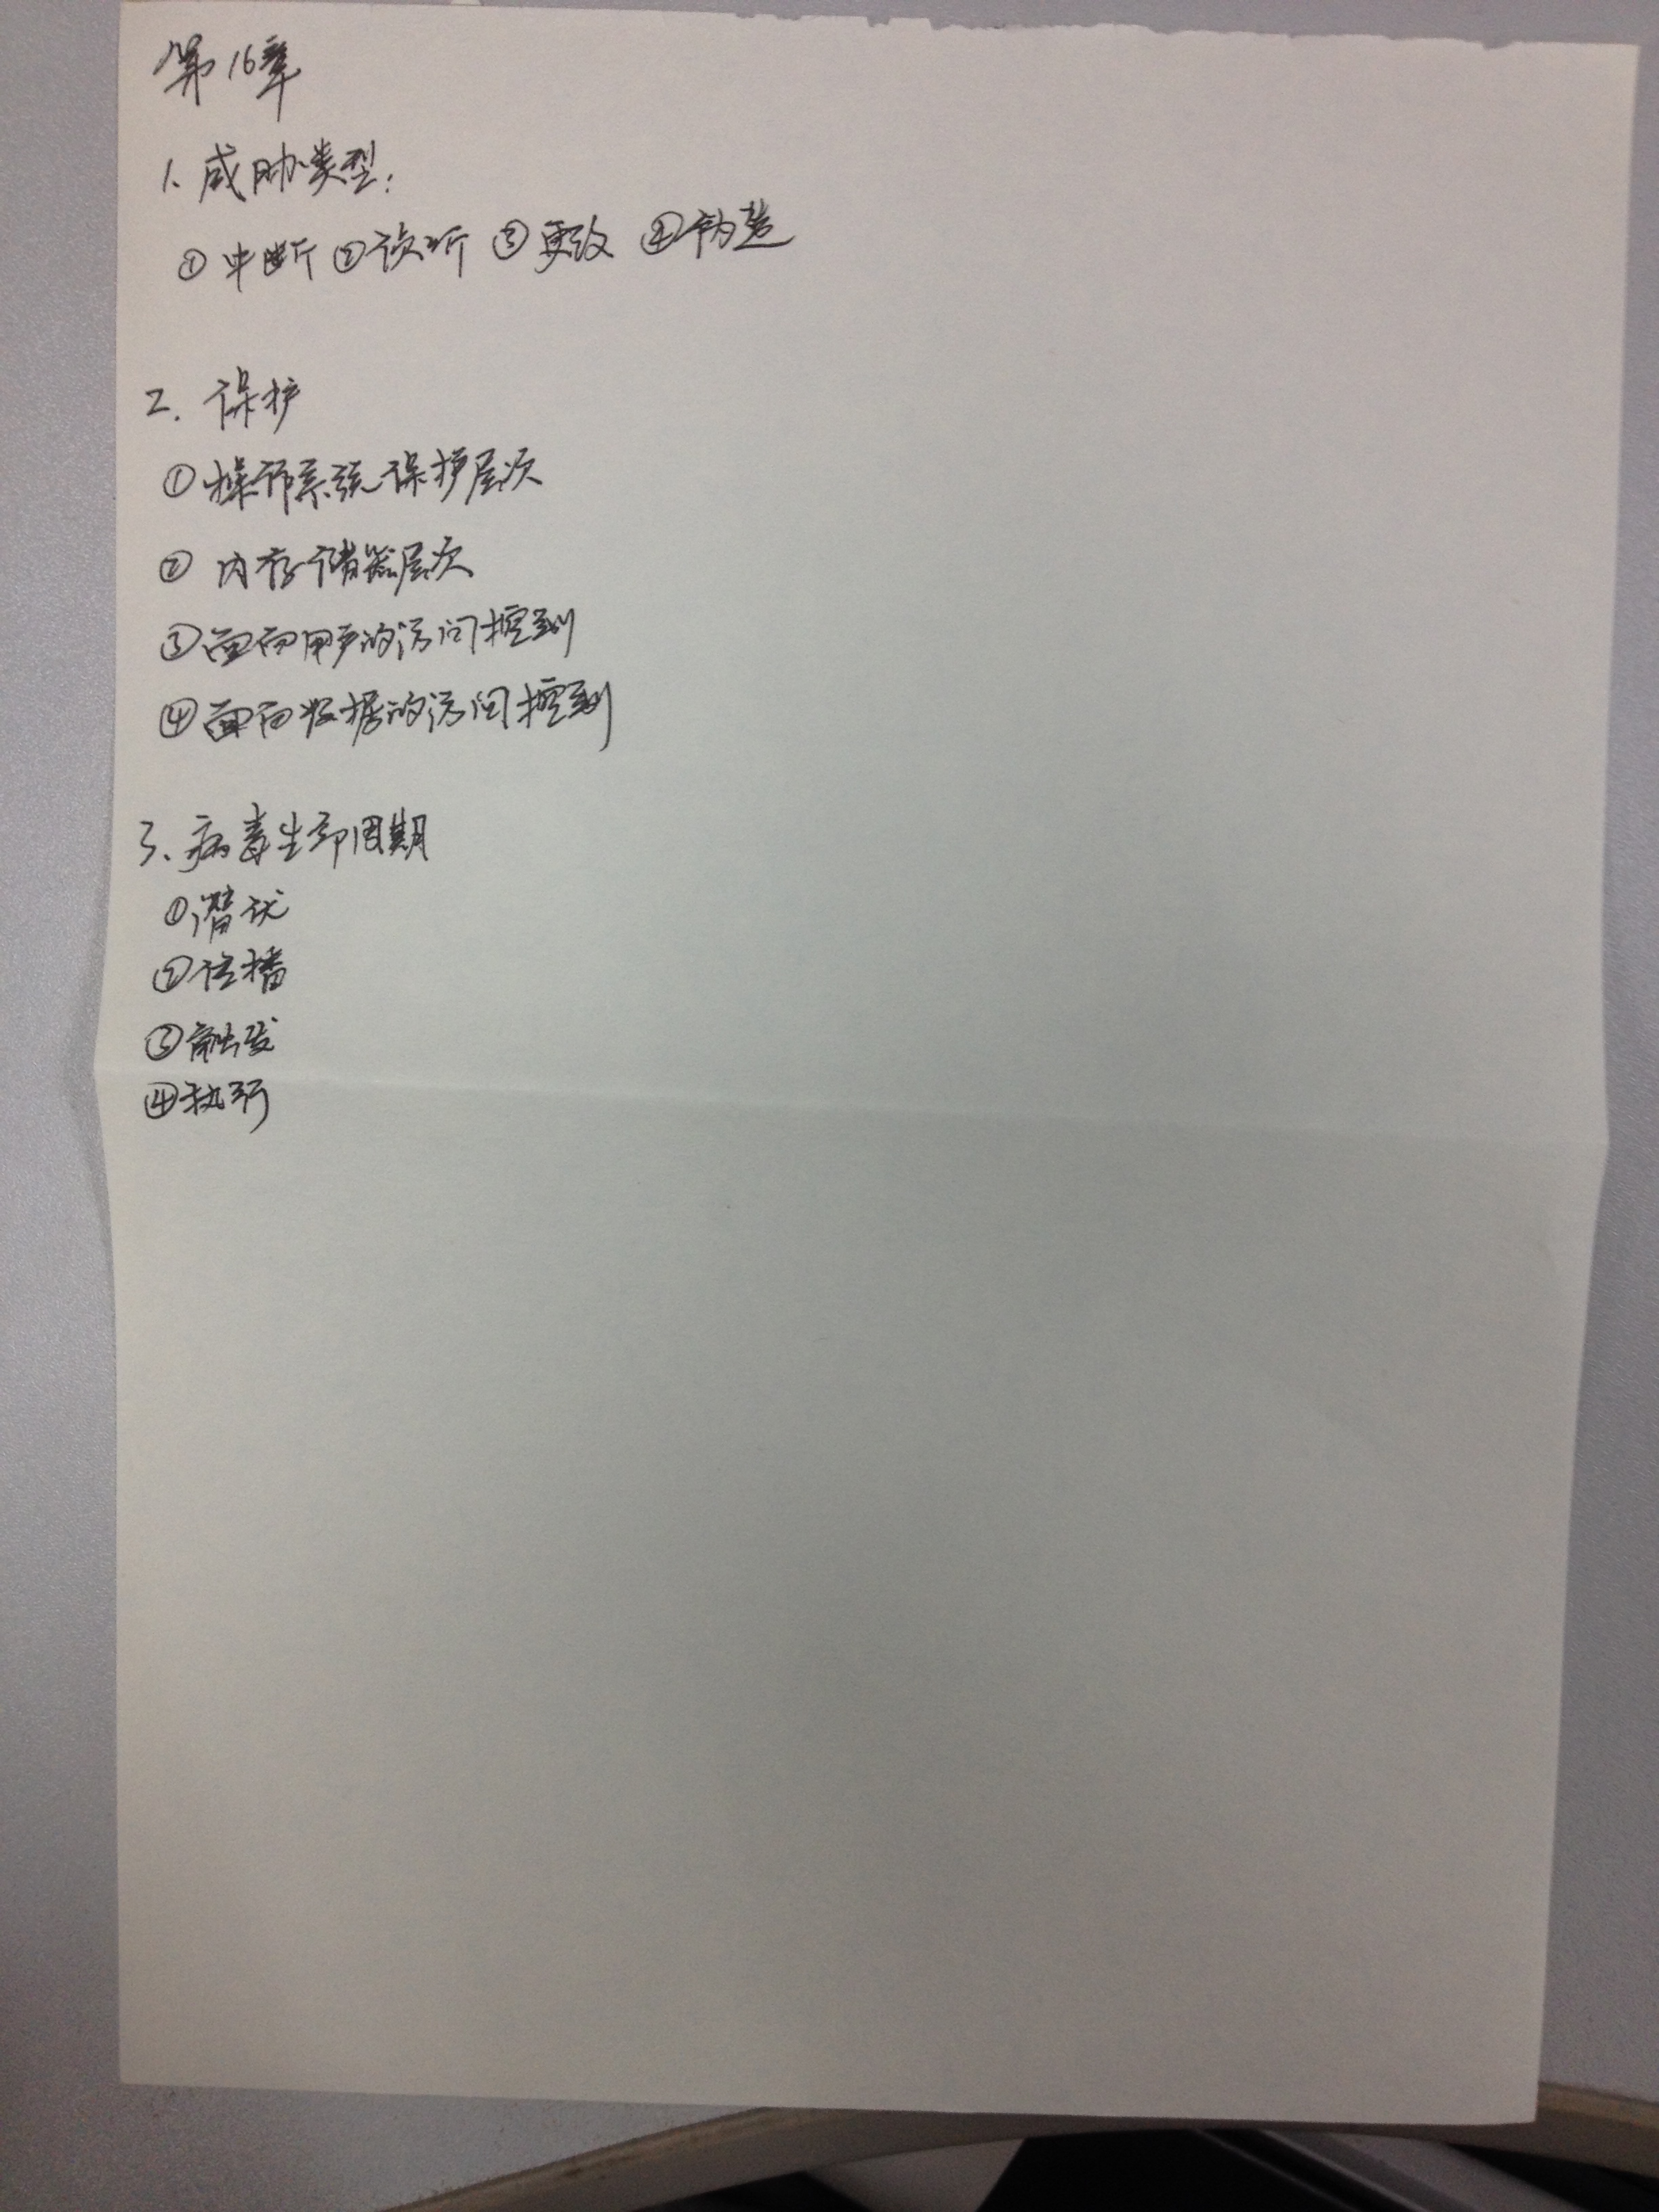 第16章
1、威胁类型：
①中断 ②侦听 ③更改 ④伪造
2. 保护
①操作系统保护层次
② 内存储器层次
③面向用户的访问控制
④面向数据的访问控制
3、病毒生命周期
①潜伏
②传播
③触发
④执行